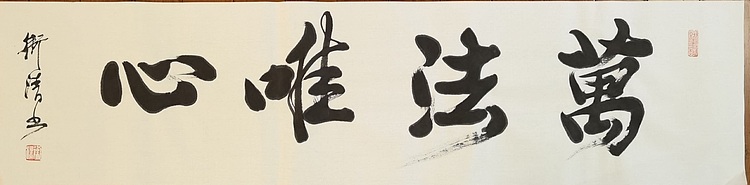 萬法唯心
衍清書